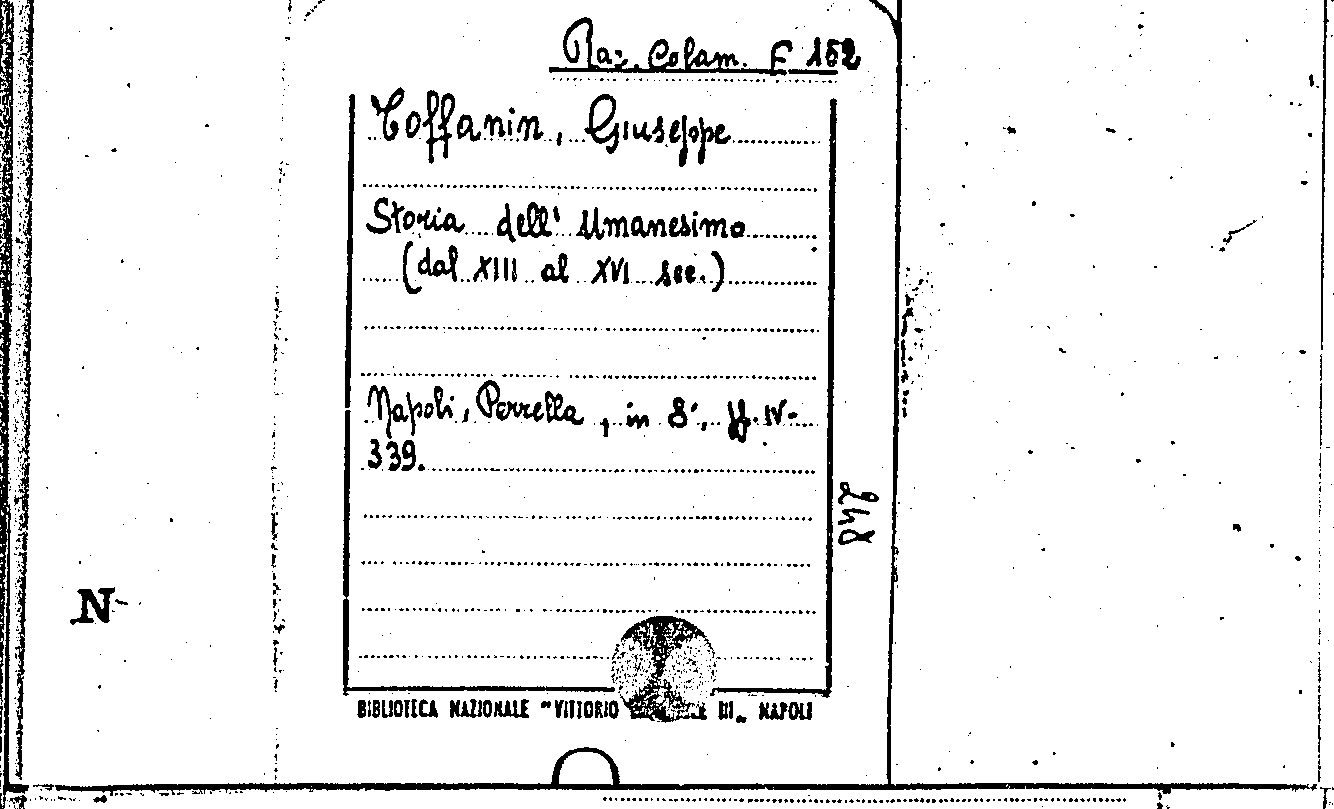 Raz. Colam. F 152
Toffanin, Giuseppe
Storia dell' Umanesimo
(dal XIII al XVI sec.)
Napoli, Perrella, in 8°, pp. IV-
339.
248
N
BIBLIOTECA NAZIONALE "VITTORIO III„ NAPOLI